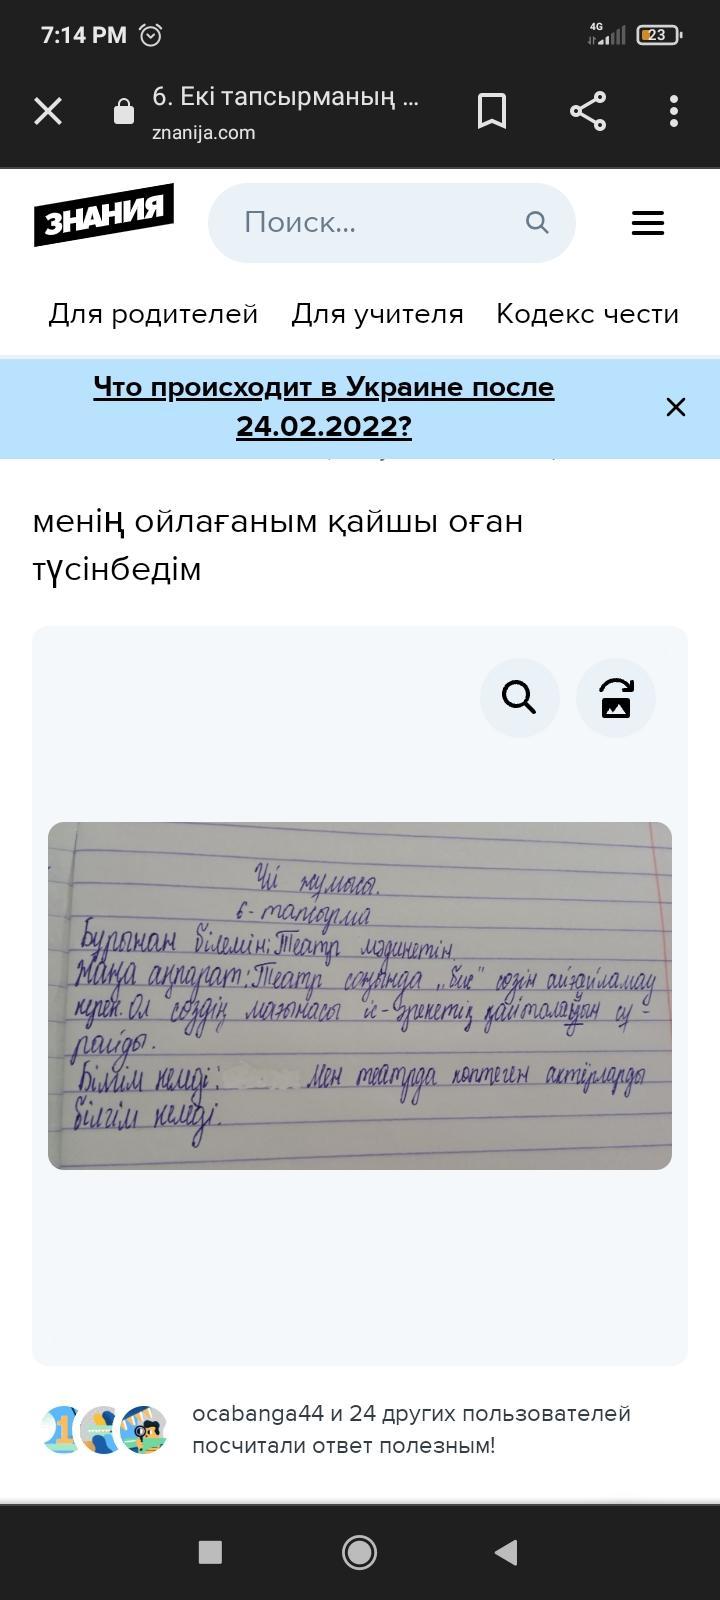 7:14 PM
4G
23
6. Екі тапсырманың ...
znanija.com
ЗНАНИЯ
Поиск...
Для родителей Для учителя Кодекс чести
Что происходит в Украине после
24.02.2022?
менің ойлағаным қайшы оған
түсінбедім
Үй жұмысы.
6-тапсырма
Бұрынан білемін: Театр мәдинетін.
Жаңа ақпарат: Театр соңында ,,бис" сөзін айғайламау
керек. Ол сөздің мағынасы іс-әрекетің қайталауын сұ-
райды.
Білгім келеді: Мен театрда көптеген актёрларды
білгім келеді.
ocabanga44 и 24 других пользователей
посчитали ответ полезным!